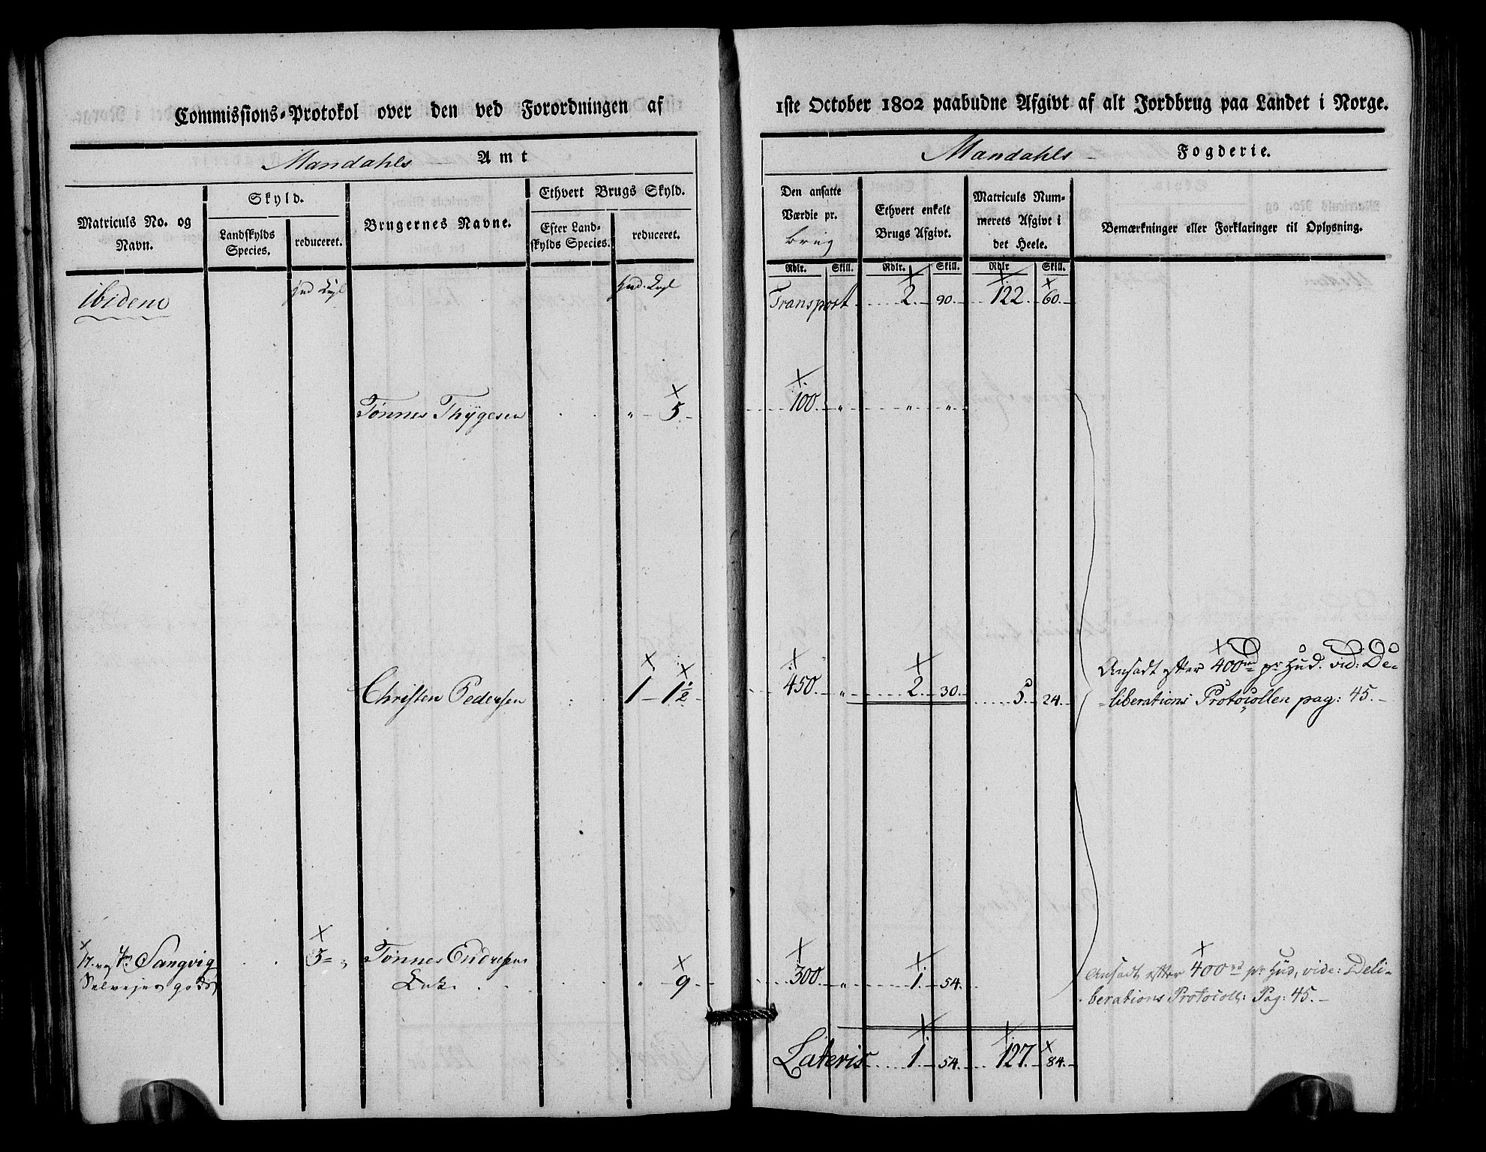 Commissions-Protokol over den ved Forordningen af
1ste October 1802 paabudne Afgivt af alt Jordbrug paa Landet i Norge.
Mandahls Amt
Mandahls Fogderie.
Matriculs No. og Navn.
Skyld.
Landskylds Species.
reduceret.
Brugernes Navne.
Ethvert Brugs Skyld.
Efter Landskylds Species.
reduceret.
Den ansatte Værdie pr. brug
Rdlr. Skill.
Ethvert enkelt Brugs Afgivt.
Rdlr. Skill.
Matriculs Nummerets Afgivt i det Heele.
Rdlr. Skill.
Bemærkninger eller Forklaringer til Oplysning.
Ibidem
Transport 2 90 122 60
Tønnes Thygesen " 5 100 " " "
Christen Pedersen 1 1½ 450 " 2 30 5 24
Ansadt efter 400 rd pr Hud. vid: De-
liberations Protocollen pag: 45.
Sangvig 3 " Tønnes Endresens " 9 300 " 1 54
Selveyer gods Enke
Ansadt efter 400 rd pr Hud, vide: Deli-
berations Protocoll: Pag: 45.
Lateris 1 54 127 84